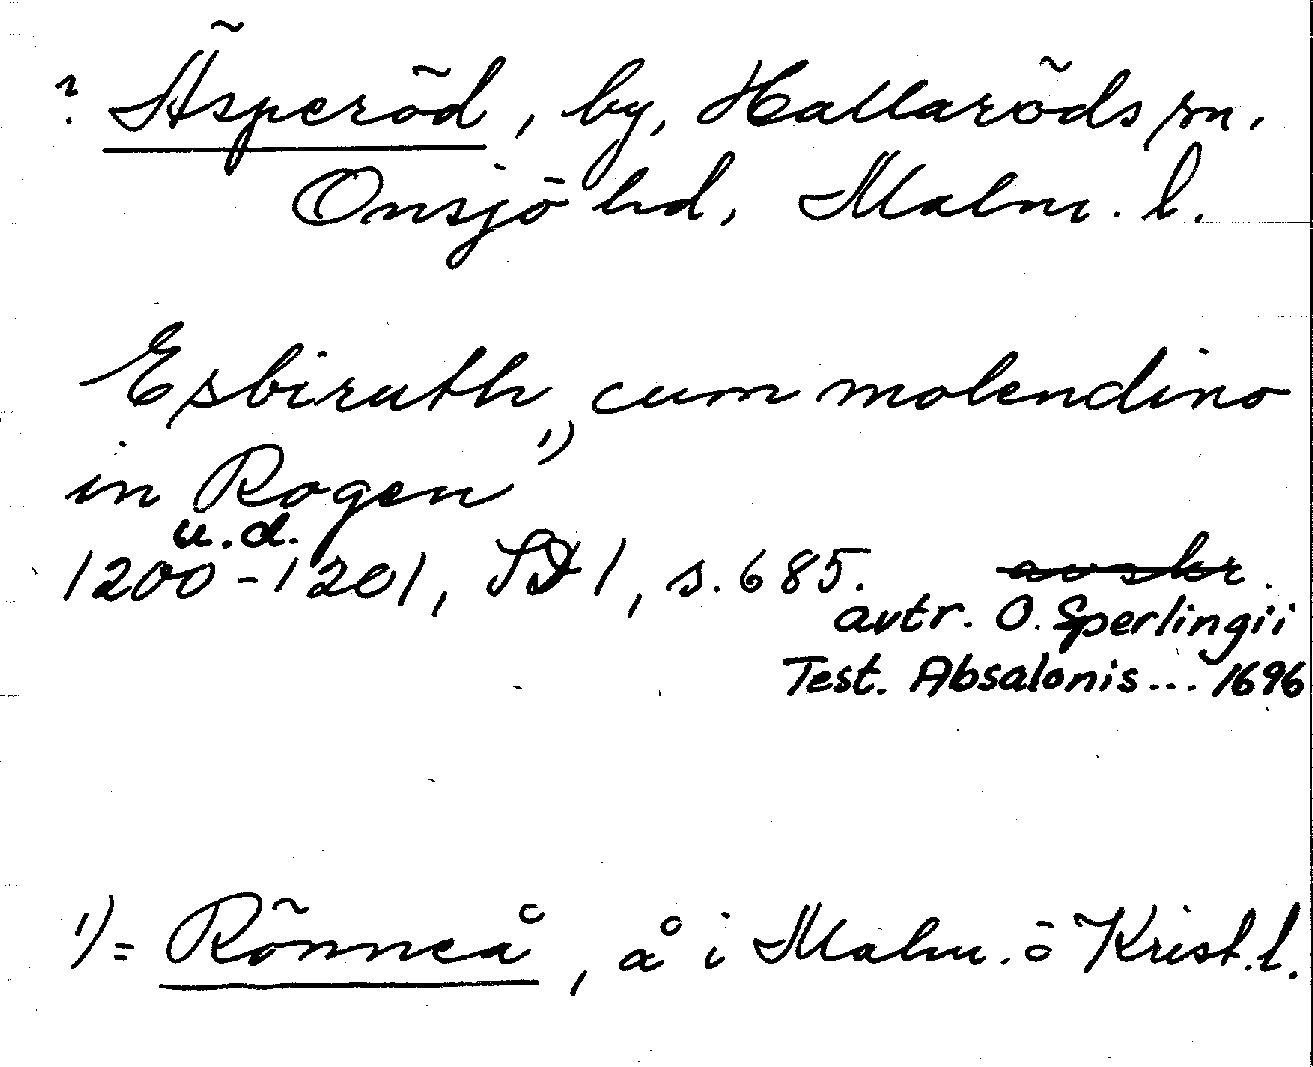 ? Äsperöd, by, Hallaröds sn,
Onsjö hd, Malm. l.
Esbiruth, cum molendino
in Rogen 1)
u.d.
1200-1201, SD 1, s. 685. avskr.
avtr. O. Sperlingii
Test. Absalonis... 1696
1) = Rönneå, å i Malm. o Krist. l.